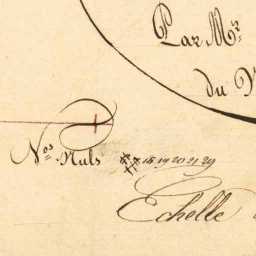 Par Mr.
du
Nos. Nuls ## 18 19 20 21 29
Echelle